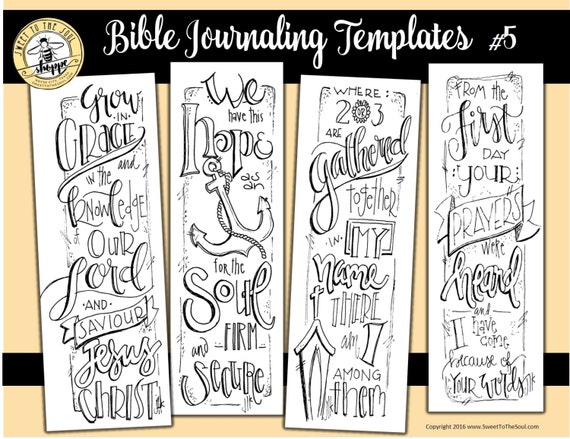 SWEET TO THE SOUL
shoppe
SweetToTheSoul.com
Bible Journaling Templates #5
Grow
IN
GRACE
and
in the
Knowledge
of
OUR
Lord
AND
SAVIOUR
Jesus
CHRIST
We
have this
hope
as an
for the
Soul
FIRM
and
Secure
WHERE
2 OR 3
ARE
gathered
together
in MY
name
THERE
am I
AMONG
them
FROM the
first
DAY
YOUR
PRAYERS
were
heard
and
I have
come
because of
YOUR WORDS
Copyright 2016 www.SweetToTheSoul.com